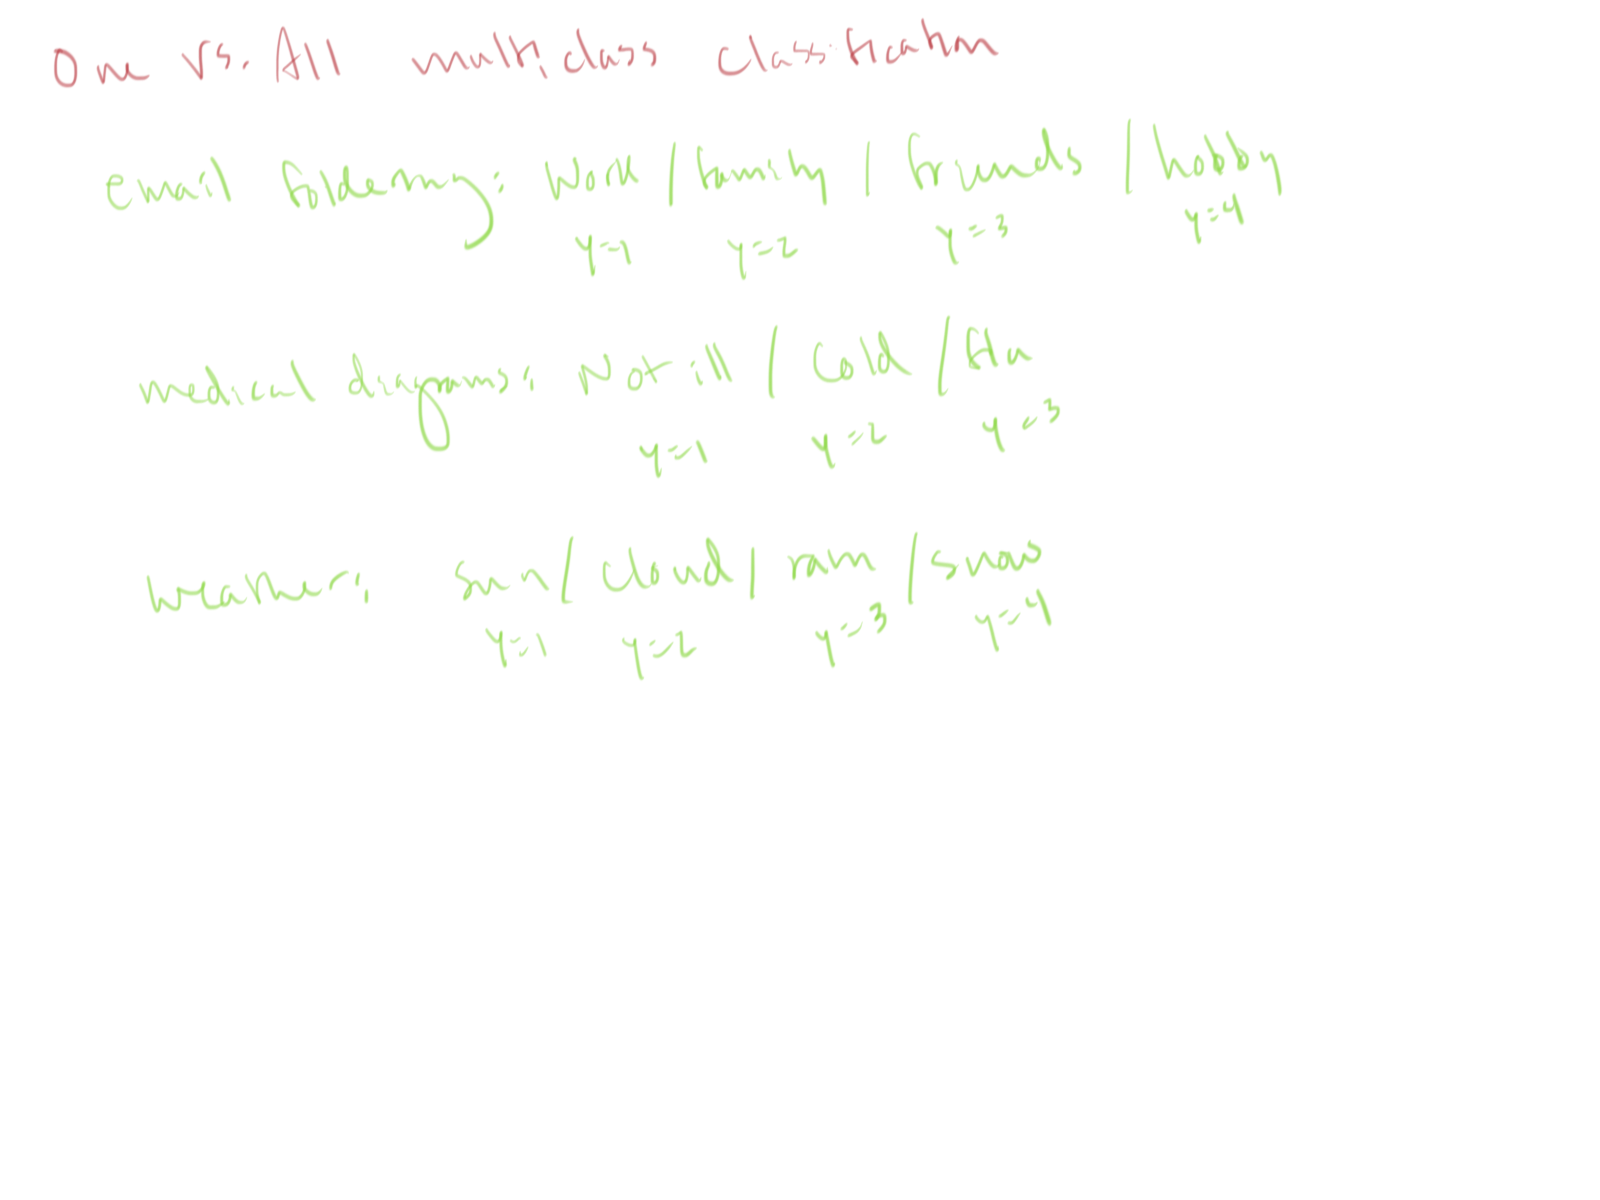 One vs. All multiclass classification
email foldering: Work / family / friends / hobby
y=1 y=2 y=3 y=4
medical diagrams: Not ill / Cold / flu
y=1 y=2 y=3
weather: sun / cloud / rain / snow
y=1 y=2 y=3 y=4